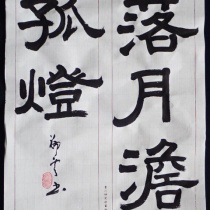 落月澹
孤燈